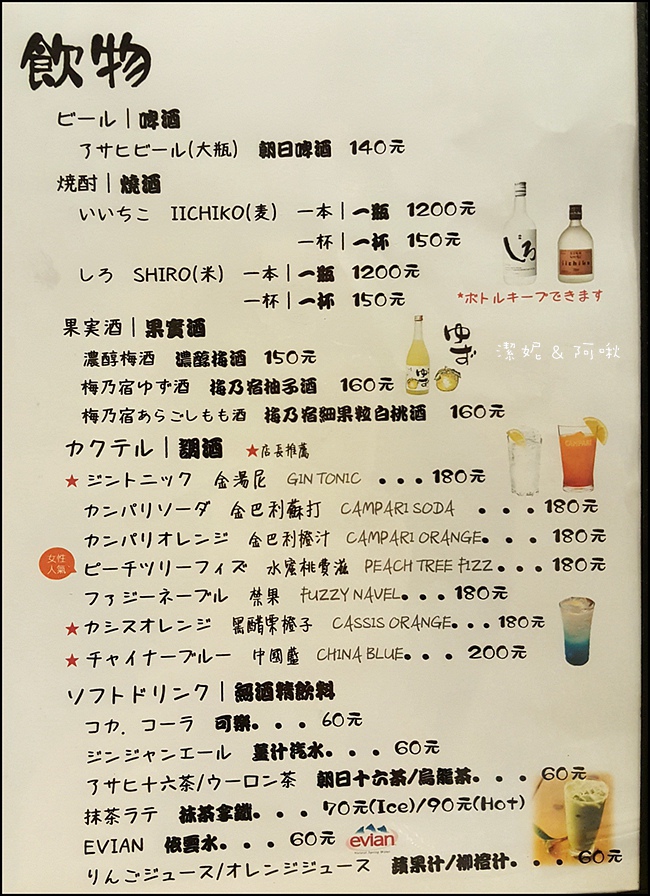 飲物
ビール | 啤酒
アサヒビール(大瓶) 朝日啤酒 140元
焼酎 | 燒酒
いいちこ IICHIKO(麦) 一本 | 一瓶 1200元
一杯 | 一杯 150元
しろ SHIRO(米) 一本 | 一瓶 1200元
一杯 | 一杯 150元
しろ
iichiko
*ボトルキープできます
果実酒 | 果實酒
濃醇梅酒 濃醇梅酒 150元
梅乃宿ゆず酒 梅乃宿柚子酒 160元
ゆず
潔妮 & 阿啾
梅乃宿あらごしもも酒 梅乃宿細果粒白桃酒 160元
カクテル | 調酒 ★店長推薦
★ジントニック 金湯尼 GIN TONIC ...180元
CAMPARI
カンパリソーダ 金巴利蘇打 CAMPARI SODA ...180元
カンパリオレンジ 金巴利橙汁 CAMPARI ORANGE... 180元
女性人氣
ピーチツリーフィズ 水蜜桃費滋 PEACH TREE FIZZ...180元
ファジーネーブル 禁果 FUZZY NAVEL...180元
★カシスオレンジ 黑醋栗橙子 CASSIS ORANGE...180元
★チャイナーブルー 中國藍 CHINA BLUE... 200元
ソフトドリンク | 無酒精飲料
コカ. コーラ 可樂... 60元
ジンジャンエール 薑汁汽水... 60元
アサヒ十六茶/ウーロン茶 朝日十六茶/烏龍茶... 60元
抹茶ラテ 抹茶拿鐵... 70元(Ice)/90元(Hot)
EVIAN 依雲水... 60元
evian
りんごジュース/オレンジジュース 蘋果汁/柳橙汁... 60元